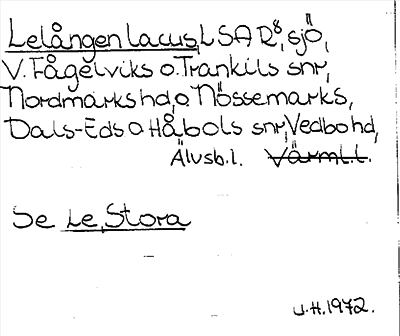 Lelången lacus, LSA R⁸, sjö,
V. Fågelviks o. Trankils snr,
Nordmarks hd, o Nössemarks,
Dals-Eds o Håbols snr, Vedbo hd,
Älvsb. l. Värml. l.
Se Le, Stora
U.H. 1972.